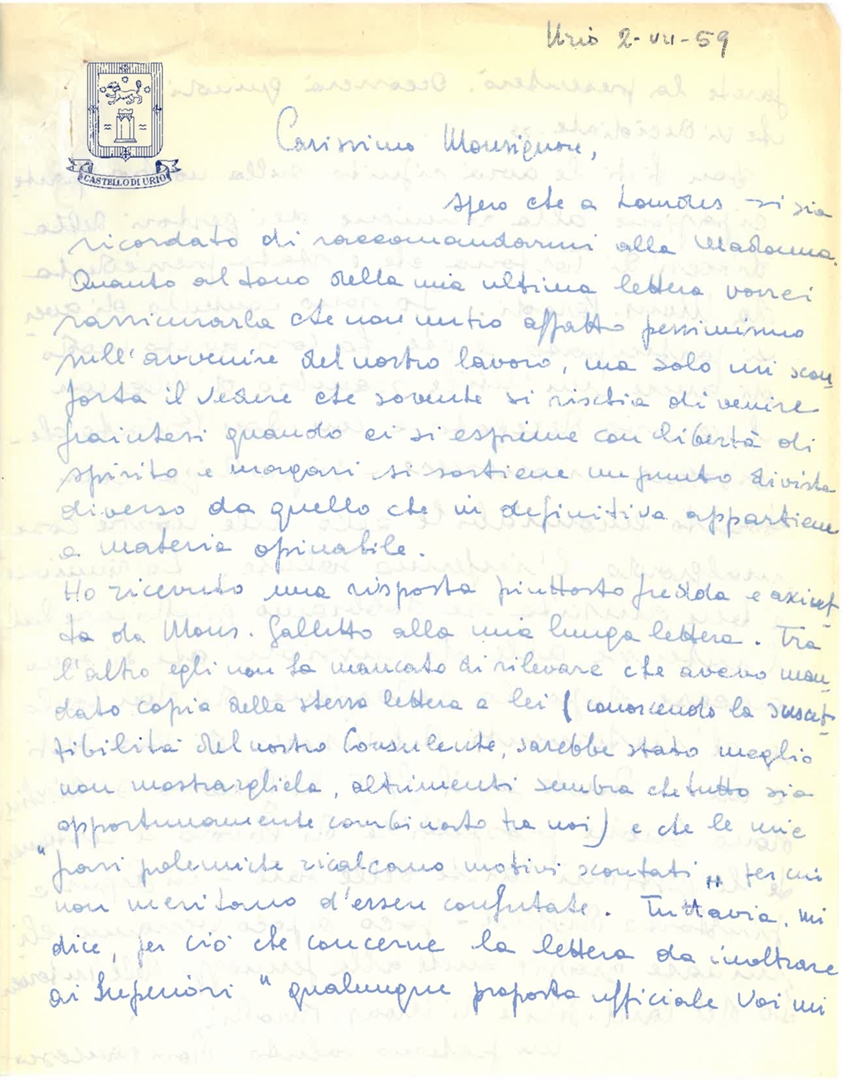 Urio 2-VII-59
CASTELLO DI URIO
Carissimo Monsignore,
spero che a Lourdes si sia
ricordato di raccomandarmi alla Madonna.
Quanto al tono della mia ultima lettera vorrei
rassicurarla che non nutro affatto pessimismo
sull'avvenire del nostro lavoro, ma solo mi scon-
forta il vedere che sovente si rischia di venire
fraintesi quando ci si esprime con libertà di
spirito e magari si sostiene un punto di vista
diverso da quello che in definitiva appartiene
a materia opinabile.
Ho ricevuto una risposta piuttosto fredda e asciut-
ta da Mons. Galletto alla mia lunga lettera. Tra
l'altro egli non ha mancato di rilevare che avevo man-
dato copia della stessa lettera a lei (conoscendo la suscet-
tibilità del nostro Consulente, sarebbe stato meglio
non mostrargliela, altrimenti sembra che tutto sia
opportunamente combinato tra noi) e che le mie
"frasi polemiche ricalcano motivi scontati" per cui
non meritano d'essere confutate. Tuttavia, mi
dice, per ciò che concerne la lettera da inoltrare
ai Superiori "qualunque proposta ufficiale Voi mi